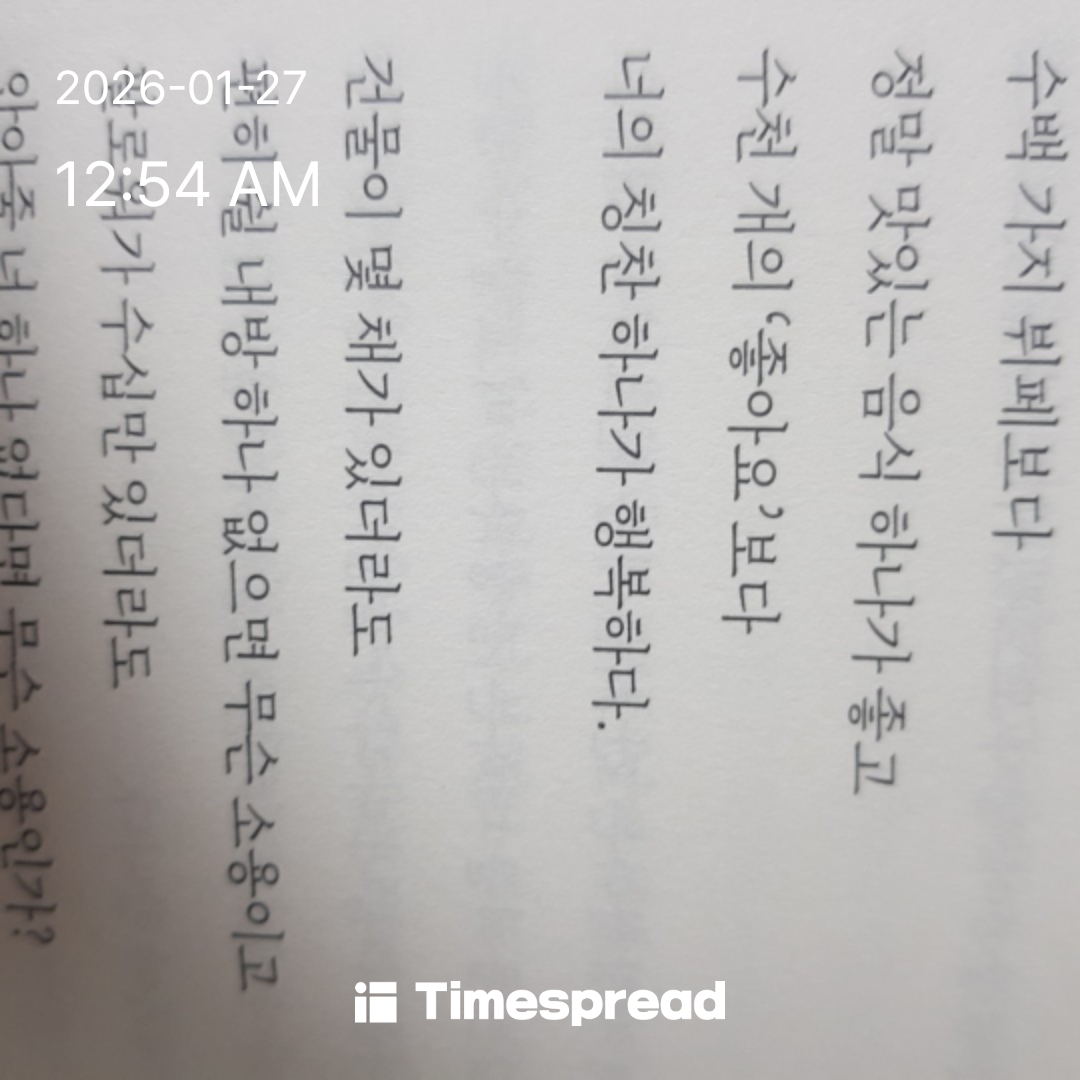 2026-01-27
12:54 AM
수백 가지 뷔페보다
정말 맛있는 음식 하나가 좋고
수천 개의 ‘좋아요’보다
너의 칭찬 하나가 행복하다.
건물이 몇 채가 있더라도
내방 하나 없으면 무슨 소용이고
수십만 있더라도
너 하나 없다면 무슨 소용인가?
Timespread